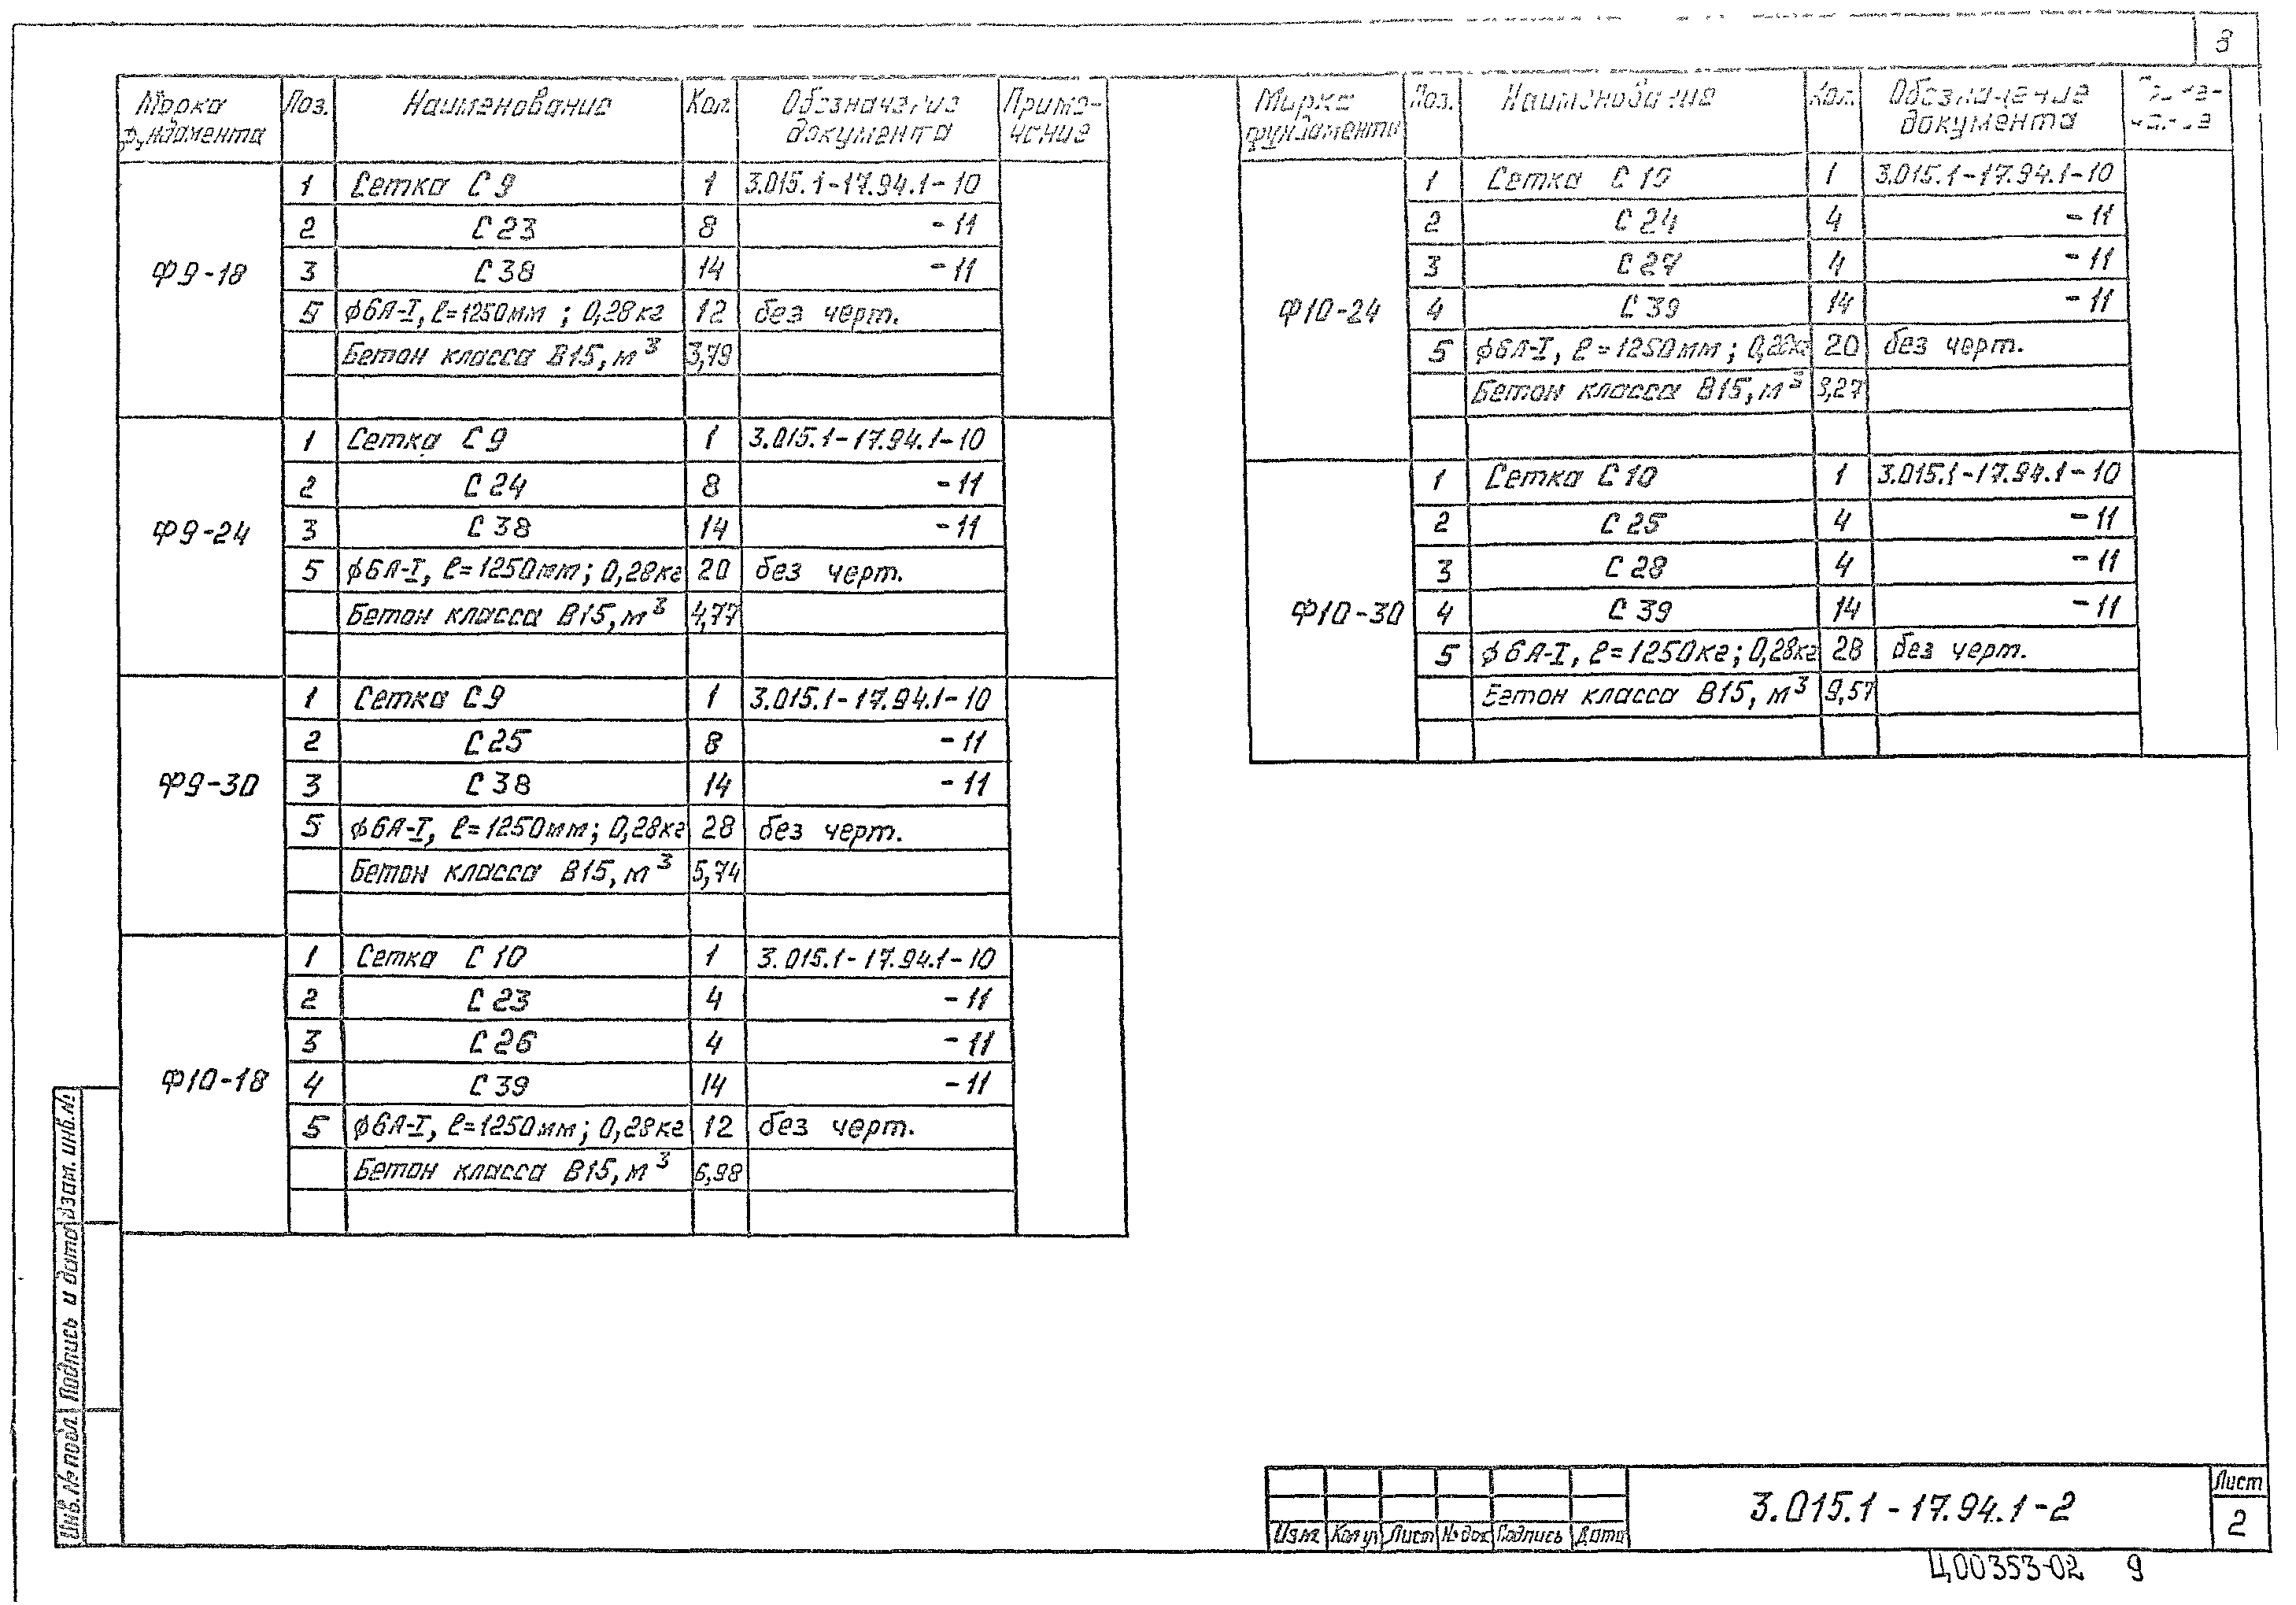 8
Марка Поз. Наименование Кол. Обозначение Приме-
фундамента документа чание
Ф9-18
1 Сетка С9 1 3.015.1-17.94.1-10
2 С23 8 -11
3 С38 14 -11
5 ϕ6А-I, ℓ=1250мм; 0,28кг 12 без черт.
Бетон класса В15, м³ 3,79
Ф9-24
1 Сетка С9 1 3.015.1-17.94.1-10
2 С24 8 -11
3 С38 14 -11
5 ϕ6А-I, ℓ=1250мм; 0,28кг 20 без черт.
Бетон класса В15, м³ 4,77
Ф9-30
1 Сетка С9 1 3.015.1-17.94.1-10
2 С25 8 -11
3 С38 14 -11
5 ϕ6А-I, ℓ=1250мм; 0,28кг 28 без черт.
Бетон класса В15, м³ 5,74
Ф10-18
1 Сетка С10 1 3.015.1-17.94.1-10
2 С23 4 -11
3 С26 4 -11
4 С39 14 -11
5 ϕ6А-I, ℓ=1250мм; 0,28кг 12 без черт.
Бетон класса В15, м³ 6,98
Марка Поз. Наименование Кол. Обозначение
фундамента документа
Ф10-24
1 Сетка С10 1 3.015.1-17.94.1-10
2 С24 4 -11
3 С27 4 -11
4 С39 14 -11
5 ϕ6А-I, ℓ=1250мм; 0,28кг 20 без черт.
Бетон класса В15, м³
Ф10-30
1 Сетка С10 1 3.015.1-17.94.1-10
2 С25 4 -11
3 С28 4 -11
4 С39 14 -11
5 ϕ6А-I, ℓ=1250кг; 0,28кг 28 без черт.
Бетон класса В15, м³ 9,57
Инв.№ подл. Подпись и дата Взам. инв.№
Изм. Кол.уч Лист №док Подпись Дата
3.015.1-17.94.1-2
Лист
2
Ц00353-02 9